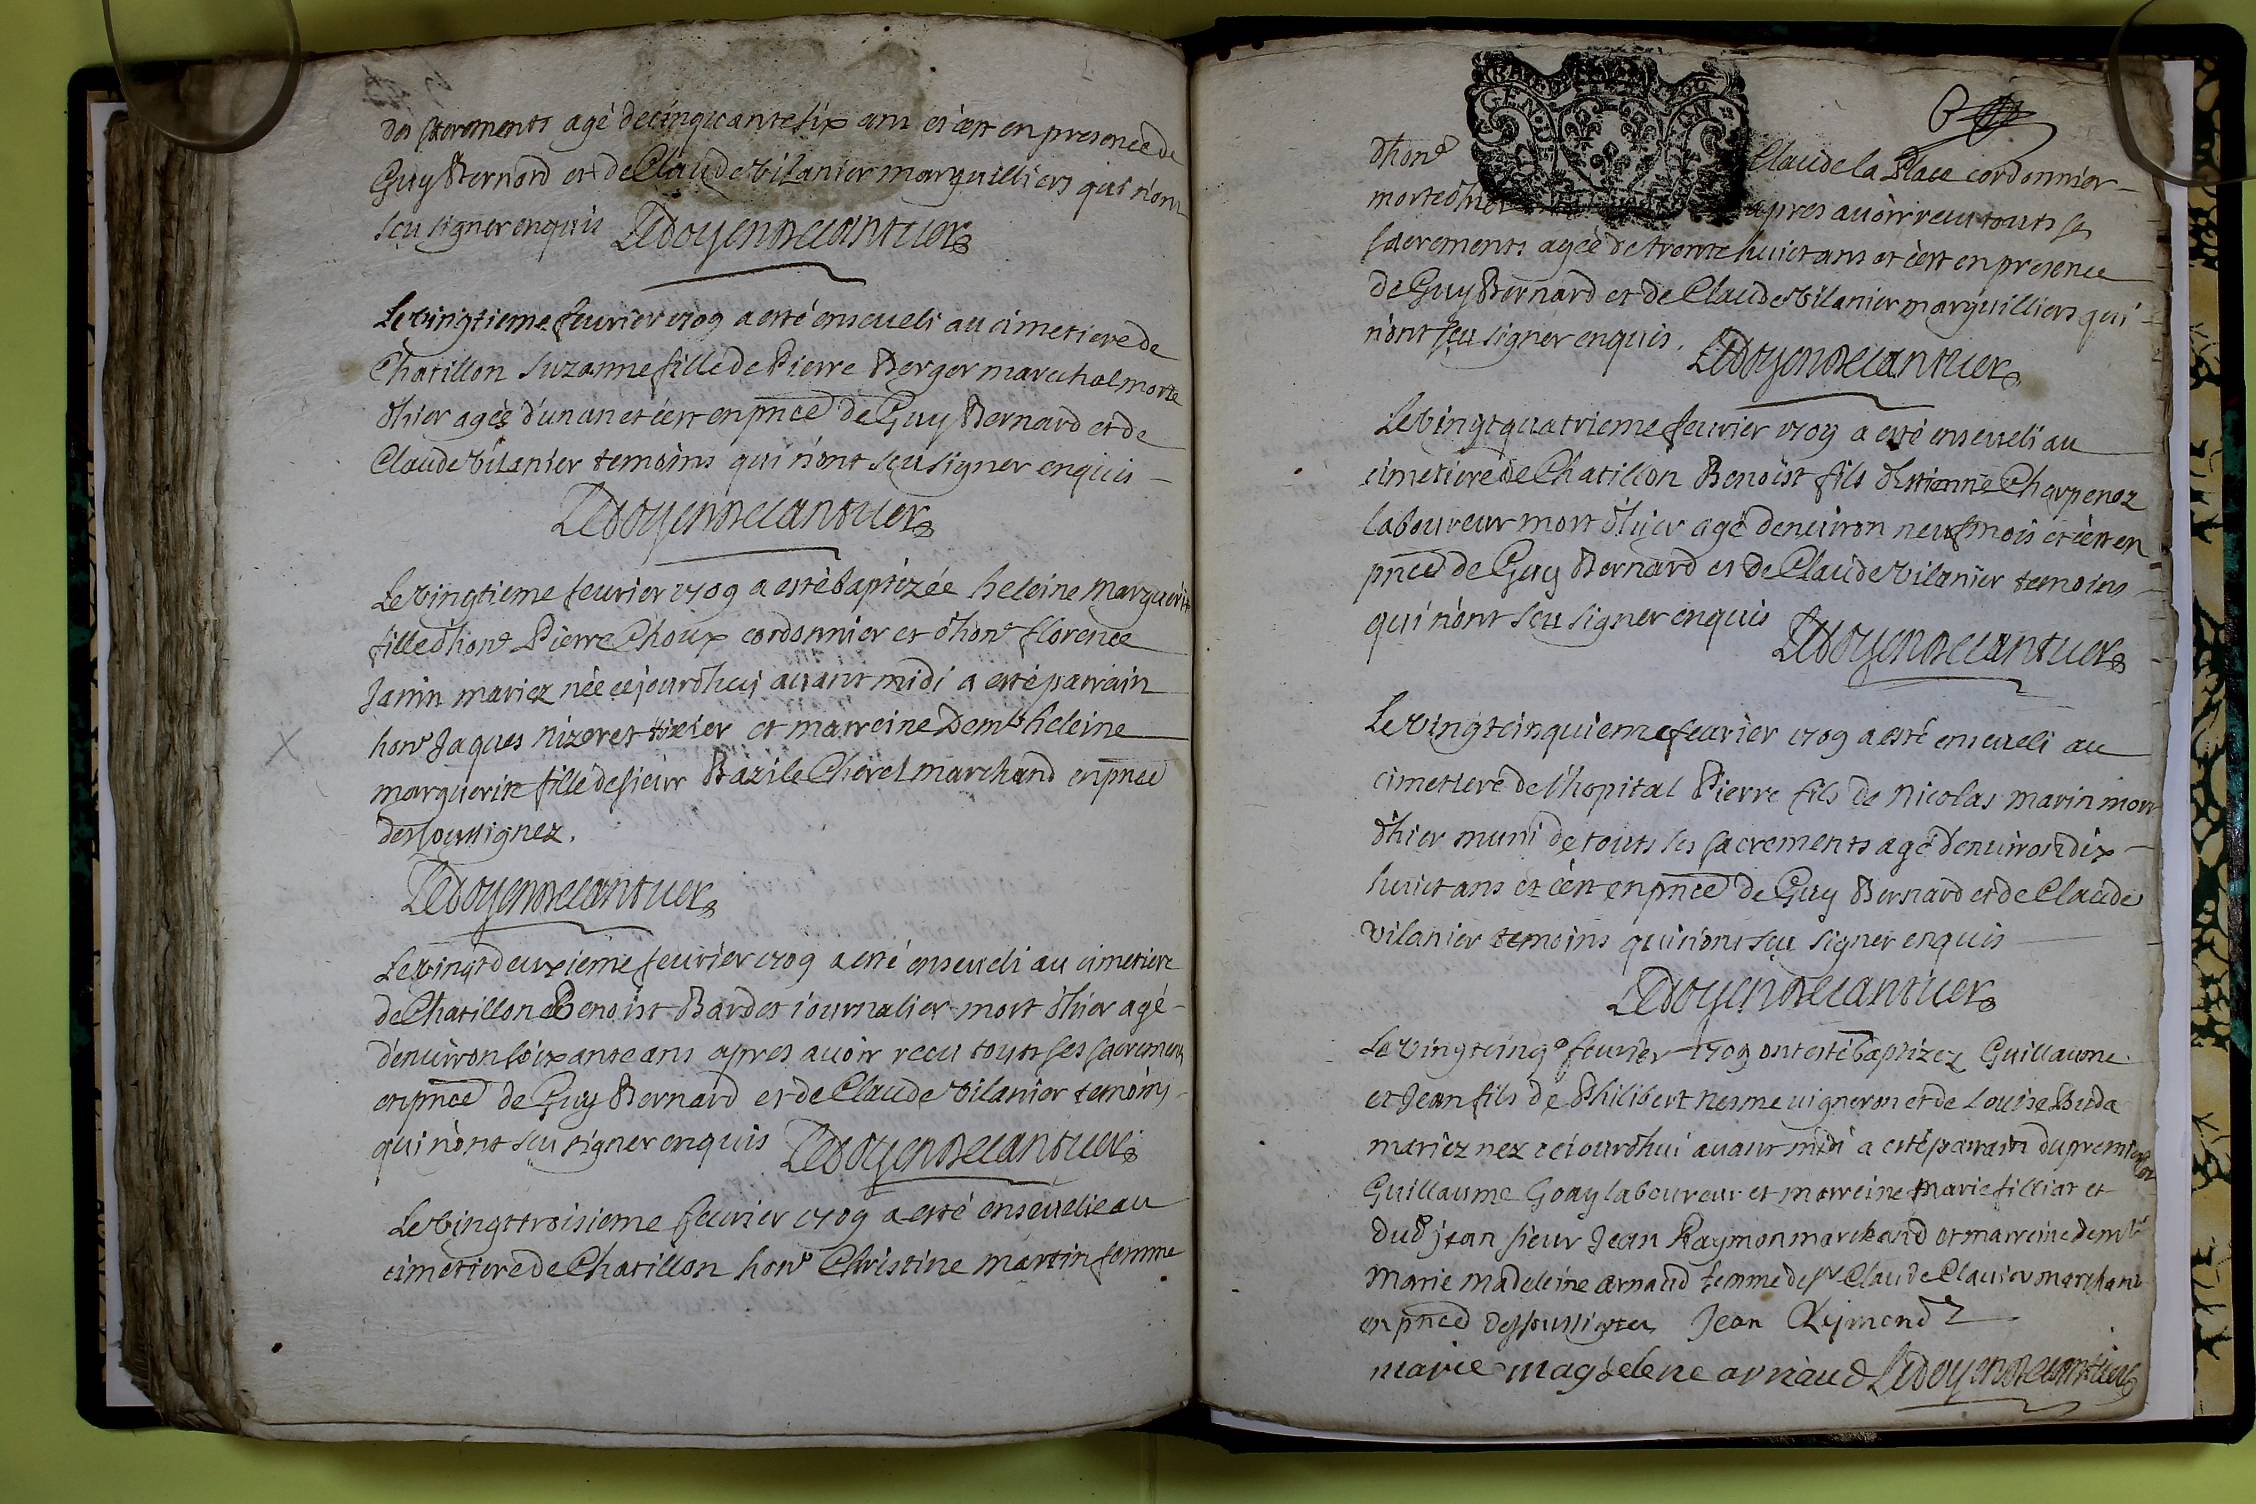 des sacrements agé de cinquante six ans et c'est en presence de
Guy Bernard et de Claude Vilanier marguilliers qui n'ont
sçu signer enquis Ledoyen
Le vingtieme fevrier 1709 a esté enseveli au cimetiere de
Chatillon Suzanne fille de Pierre Berger marechal morte
d'hier agée d'un an et c'est en pnce de Guy Bernard et de
Claude Vilanier temoins qui n'ont sçu signer enquis
Ledoyen
Le vingtieme fevrier 1709 a esté baptizée heleine Marguerite
fille d'hon Pierre Choux cordonnier et d'hon florence
Janin mariez née cejourdhuy avant midi a esté parrain
hon Jaques Nizeret tixier et marreine Demlle heleine
marguerite fille de sieur Bazile Cheret marchand en pnce
des soussignez.
Ledoyen
Le vingtdeuxieme fevrier 1709 a esté enseveli au cimetiere
de Chatillon Benoist Bardet journalier mort d'hier agé
d'environ soixante ans apres avoir recu touts ses sacrements
en pnce de Guy Bernard et de Claude Vilanier temoins
qui n'ont sçu signer enquis Ledoyen
Le vingttroisieme fevrier 1709 a esté ensevelie au
cimetiere de Chatillon hon Christine Martin femme
d'hon Claude la Place cordonnier
morte d'hier apres avoir recu touts ses
sacrements agée de trente huict ans et c'est en presence
de Guy Bernard et de Claude Vilanier marguilliers qui
n'ont sçu signer enquis. Ledoyen
Le vingtquatrieme fevrier 1709 a esté enseveli au
cimetiere de Chatillon Benoist fils d'Estienne Charpenez
laboureur mort d'hier agé d'environ neuf mois et c'est en
pnce de Guy Bernard et de Claude Vilanier temoins
qui n'ont sçu signer enquis Ledoyen
Le vingtcinquieme fevrier 1709 a esté enseveli au
cimetiere de l'hopital Pierre fils de Nicolas Marin mort
d'hier muni de touts ses sacrements agé d'environ dix
huict ans et c'est en pnce de Guy Bernard et de Claude
Vilanier temoins qui n'ont sçu signer enquis
Ledoyen
Le vingtcinqe fevrier 1709 ont esté baptizez Guillaume
et Jean fils de Philibert Nesme vigneron et de Louise Buda
mariez nez cejourdhui avant midi a esté parrain du premier
Guillaume Gony laboureur et marreine Marie filliat et
dud jean sieur Jean Raymon marchand et marreine demlle
Marie Madeleine Arnaud femme de sr Claude Clavier marchand
en pnce des soussignez Jean Reymond
marie magdelene arnaud Ledoyen